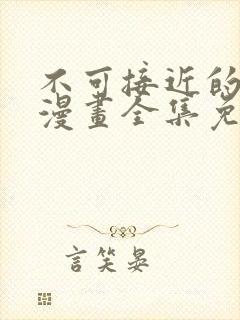 不可接近的
漫畫全集免
言笑晏